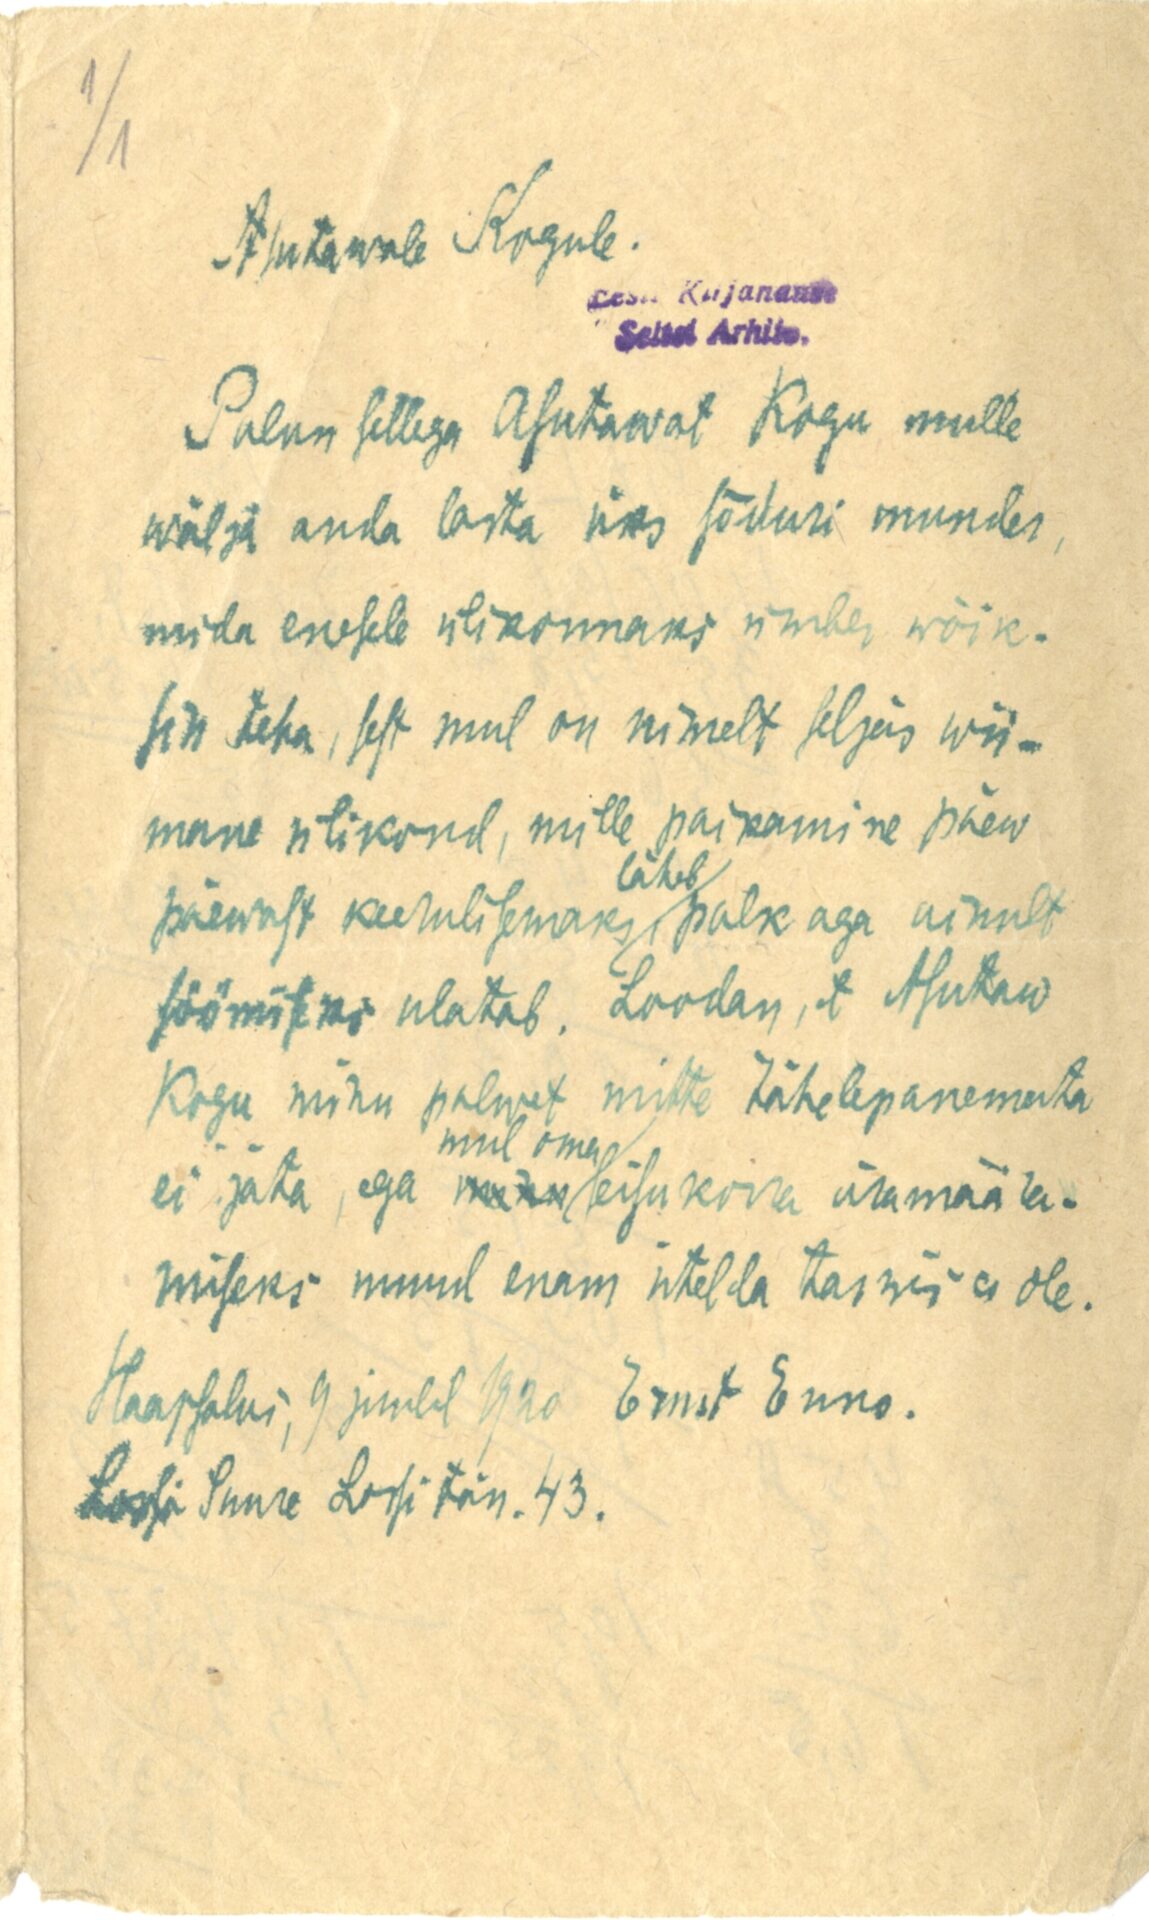 1/1
Asutawale Kogule.
Eesti Kirjanduse
Seltsi Arhiiv.
Palun sellega Asutawat Kogu mulle
wälja anda lasta üks sõduri munder,
mida enesele ülikonnaks ümber wõik-
sin teha, sest mul on nimelt seljas wii-
mane ülikond, mille paikamine päew
päewast keerulisemaks läheb, palk aga ainult
söömiseks ulatab. Loodan, et Asutaw
Kogu minu palwet mitte tähelepanemata
ei jäta, ega mul oma seisukorra äramäära-
miseks muud enam ütelda tarwis ei ole.
Haapsalus, 9 juulil 1920 Ernst Enno.
Lossi Suure Lossi tän. 43.